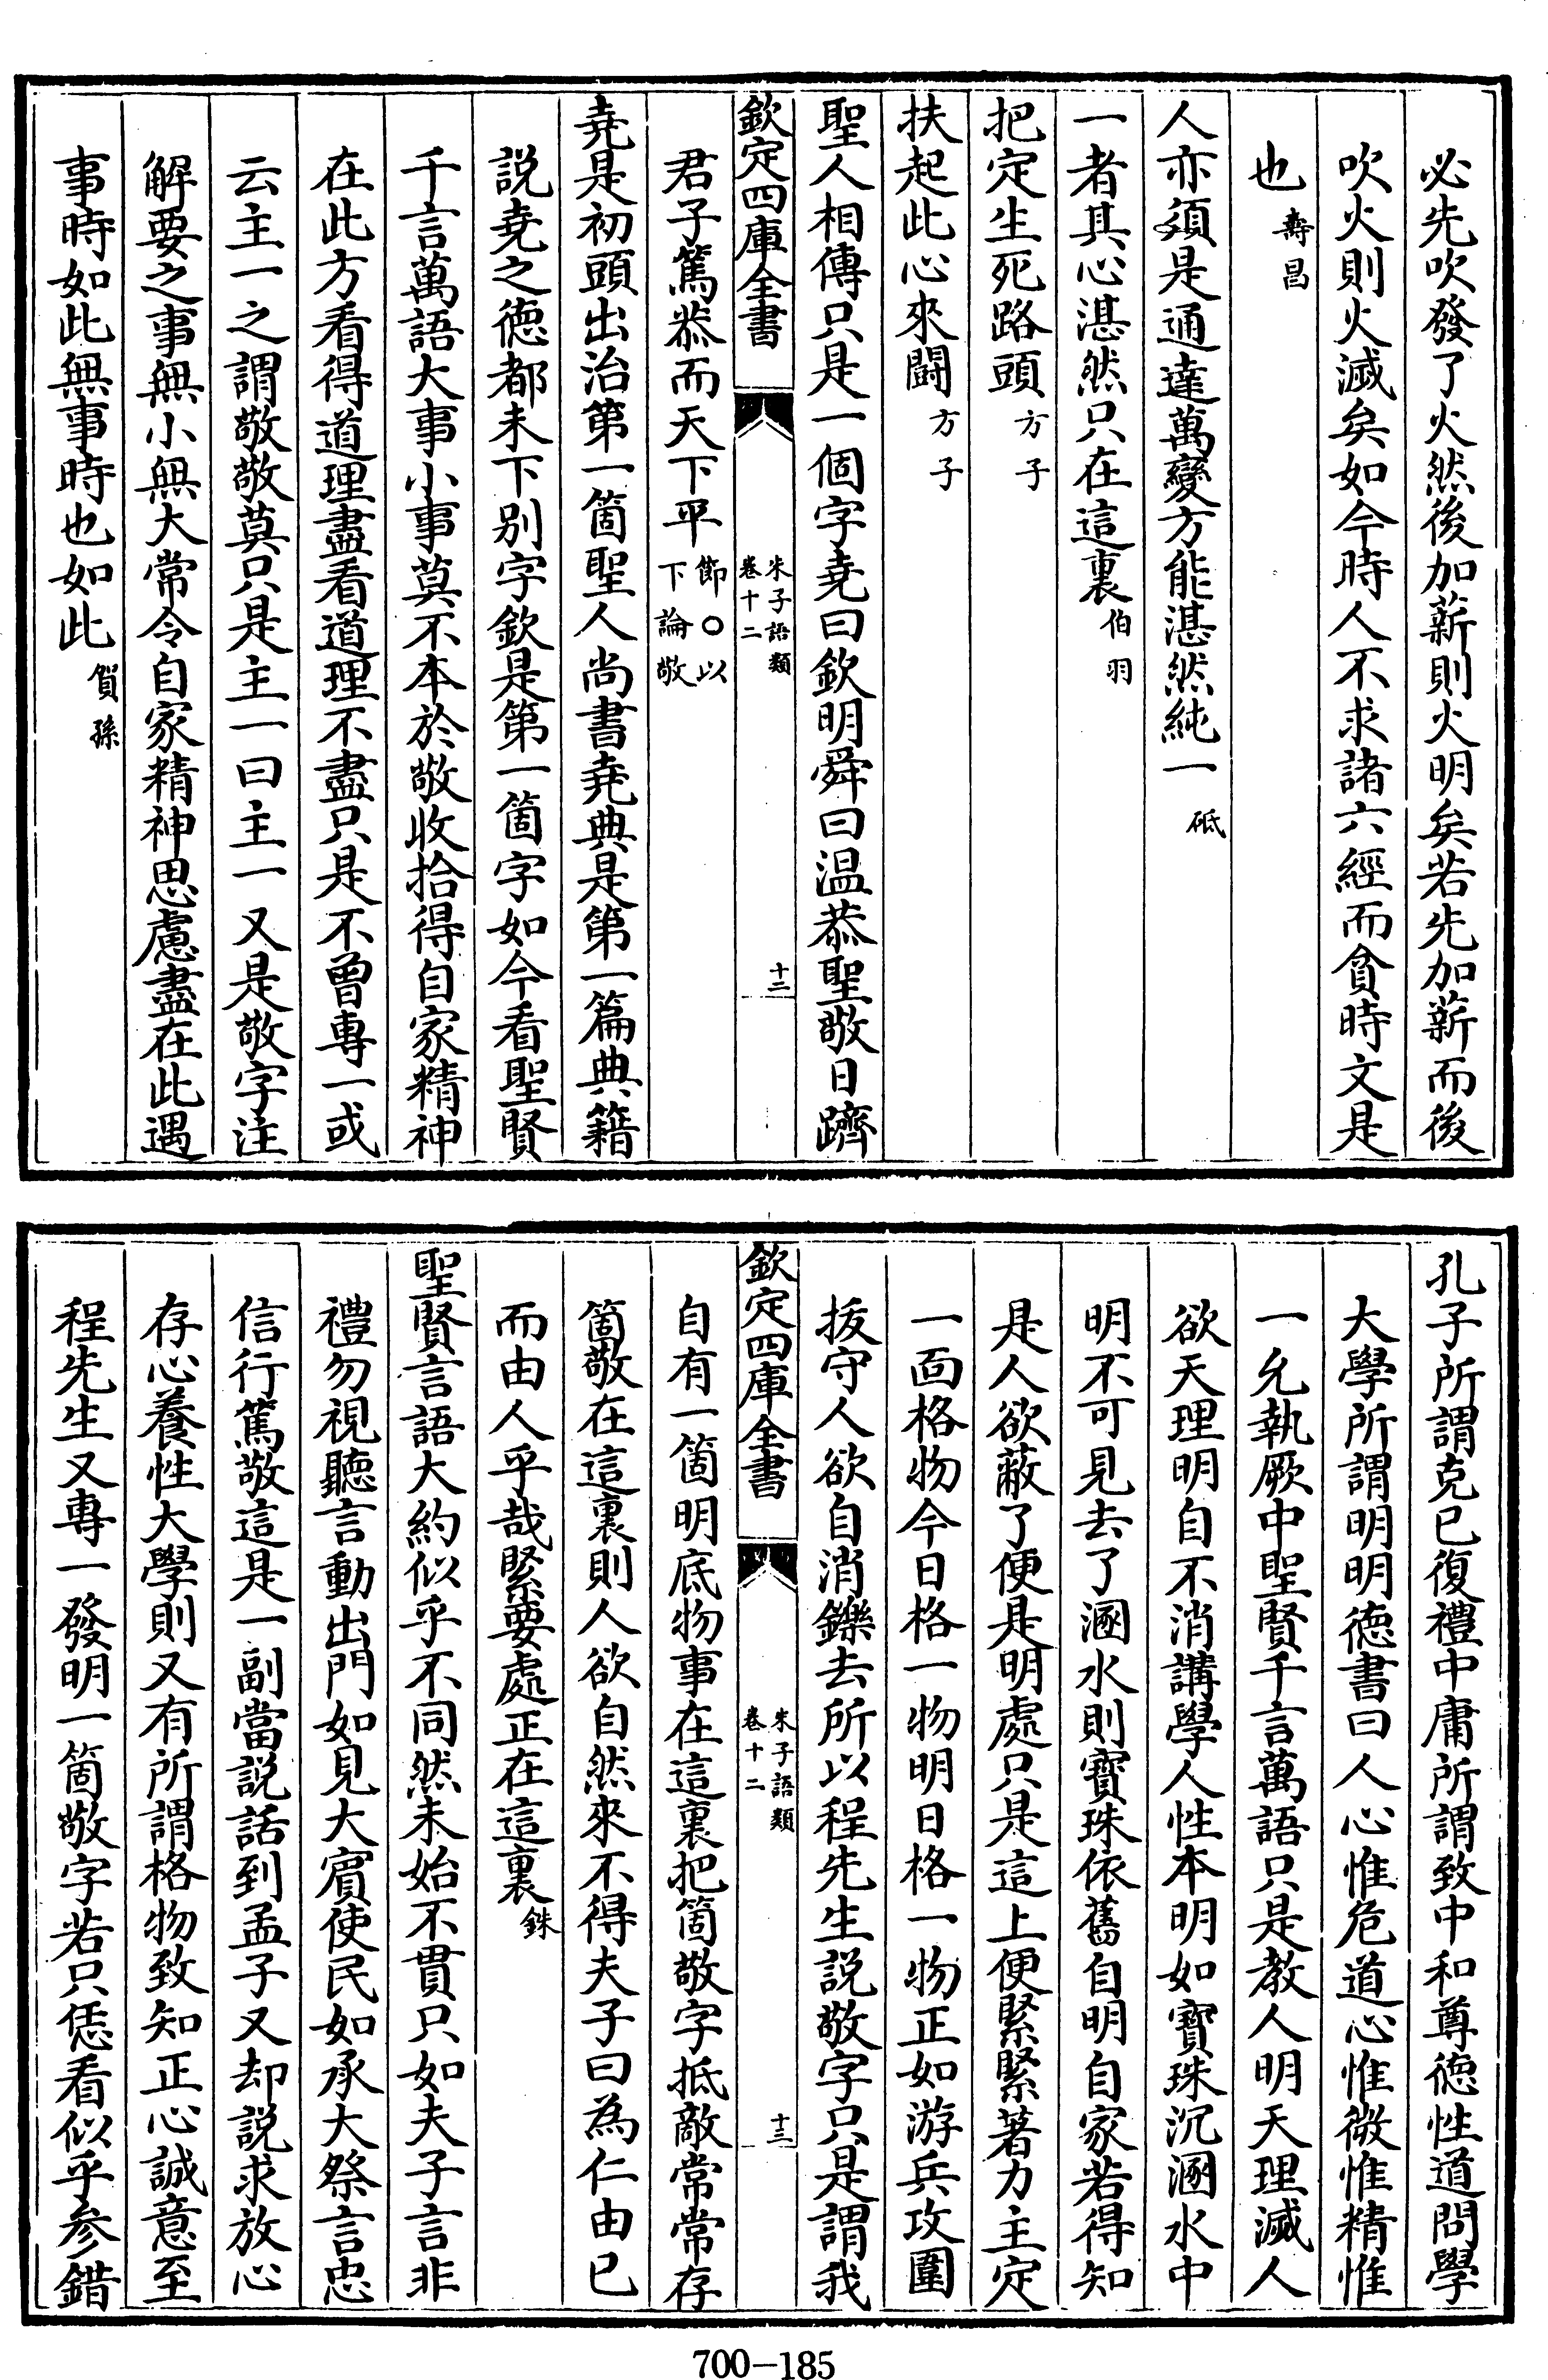 必先吹發了火然後加薪則火明矣若先加薪而後
吹火則火滅矣如今時人不求諸六經而貪時文是
也壽昌
人亦須是通達萬變方能湛然純一砥
一者其心湛然只在這裏伯羽
把定生死路頭方子
扶起此心來鬪方子
聖人相傳只是一個字堯曰欽明舜曰温恭聖敬日躋
欽定四庫全書 朱子語類卷十二 十二
君子篤恭而天下平節○以下論敬
堯是初頭出治第一箇聖人尚書堯典是第一篇典籍
説堯之徳都未下别字欽是第一箇字如今看聖賢
千言萬語大事小事莫不本於敬收拾得自家精神
在此方看得道理盡看道理不盡只是不曾專一或
云主一之謂敬敬莫只是主一曰主一又是敬字注
解要之事無小無大常令自家精神思慮盡在此遇
事時如此無事時也如此賀孫
孔子所謂克已復禮中庸所謂致中和尊徳性道問學
大學所謂明明徳書曰人心惟危道心惟微惟精惟
一允執厥中聖賢千言萬語只是教人明天理滅人
欲天理明自不消講學人性本明如寳珠沉溷水中
明不可見去了溷水則寳珠依舊自明自家若得知
是人欲蔽了便是明處只是這上便緊緊著力主定
一面格物今日格一物明日格一物正如游兵攻圍
拔守人欲自消鑠去所以程先生説敬字只是謂我
欽定四庫全書 朱子語類卷十二 十三
自有一箇明底物事在這裏把箇敬字抵敵常常存
箇敬在這裏則人欲自然來不得夫子曰為仁由已
而由人乎哉緊要處正在這裏銖
聖賢言語大約似乎不同然未始不貫只如夫子言非
禮勿視聽言動出門如見大賔使民如承大祭言忠
信行篤敬這是一副當説話到孟子又却説求放心
存心養性大學則又有所謂格物致知正心誠意至
程先生又專一發明一箇敬字若只恁看似乎參錯
700-185